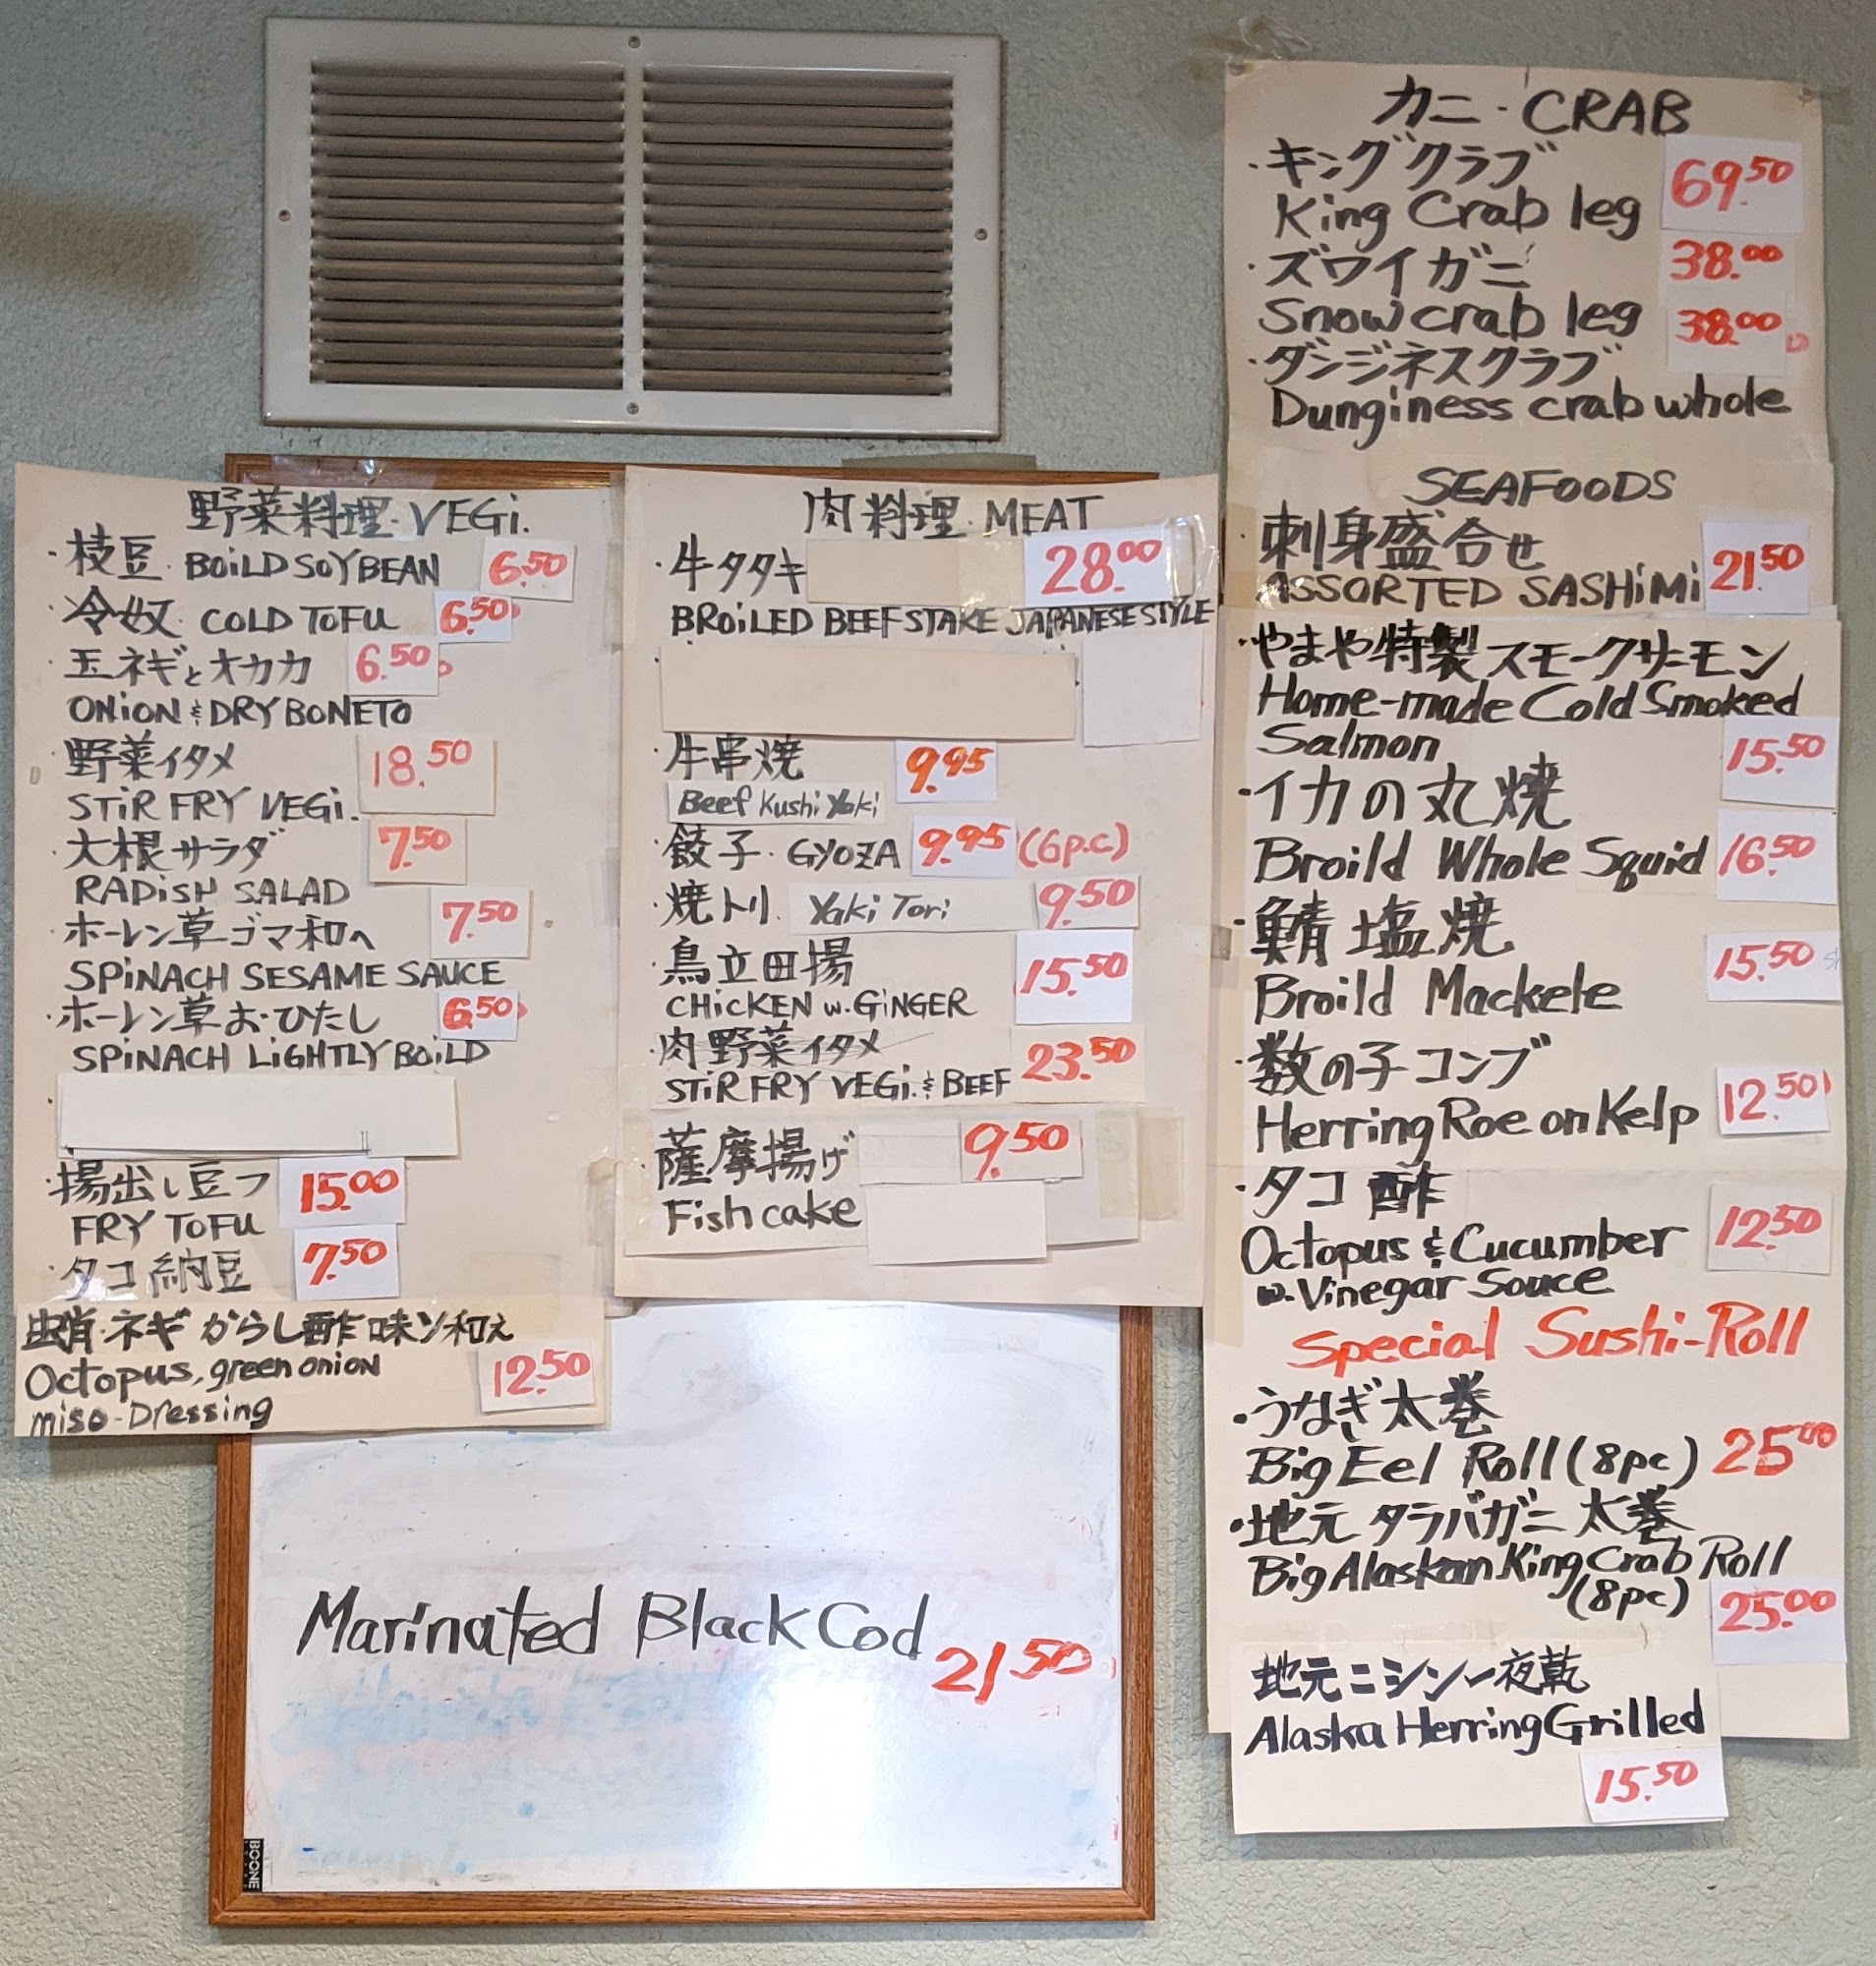 野菜料理・VEGi.
・枝豆 BOiLD SOYBEAN 6.50
・冷奴 COLD TOFU 6.50
・玉ネギとオカカ 6.50
ONiON & DRY BONETO
・野菜イタメ 18.50
STiR FRY VEGi.
・大根サラダ 7.50
RADiSH SALAD
・ホーレン草ゴマ和へ 7.50
SPiNACH SESAME SAUCE
・ホーレン草おひたし 6.50
SPiNACH LiGHTLY BOiLD
・揚出し豆フ 15.00
FRY TOFU
・タコ納豆 7.50
ネギからし酢味ソ和え
Octopus, green onion 12.50
miso-Dressing
肉料理・MEAT
・牛タタキ 28.00
BROiLED BEEF STAKE JAPANESE STYLE
・牛串焼 9.95
Beef Kushi Yaki
・餃子・GYOZA 9.95 (6p.c)
・焼トリ Yaki Tori 9.50
・鳥立田揚 15.50
CHiCKEN w. GiNGER
・肉野菜イタメ 23.50
STiR FRY VEGi. & BEEF
薩摩揚げ 9.50
Fish cake
Marinated Black Cod 21.50
BOONE
カニ・CRAB
・キングクラブ 69.50
King Crab leg
・ズワイガニ 38.00
Snow crab leg 38.00
・ダンジネスクラブ
Dunginess crab whole
SEAFOODS
・刺身盛合せ 21.50
ASSORTED SASHiMi
・やまや特製スモークサーモン
Home-made Cold Smoked
Salmon 15.50
・イカの丸焼
Broild Whole Squid 16.50
・鯖塩焼 15.50
Broild Mackele
・数の子コンブ 12.50
Herring Roe on Kelp
・タコ酢 12.50
Octopus & Cucumber
w. Vinegar Souce
Special Sushi-Roll
・うなぎ太巻
Big Eel Roll (8pc) 25.00
・地元タラバガニ太巻
Big Alaskan King Crab Roll
(8pc) 25.00
地元ニシン一夜乾
Alaska Herring Grilled
15.50